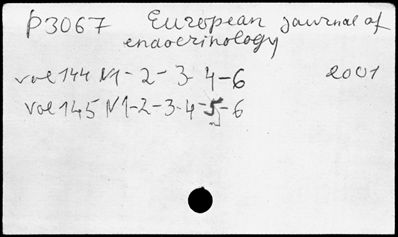 P3067 European journal of
endocrinology
vol 144 N1-2-3-4-6 2001
vol 145 N1-2-3-4-5-6